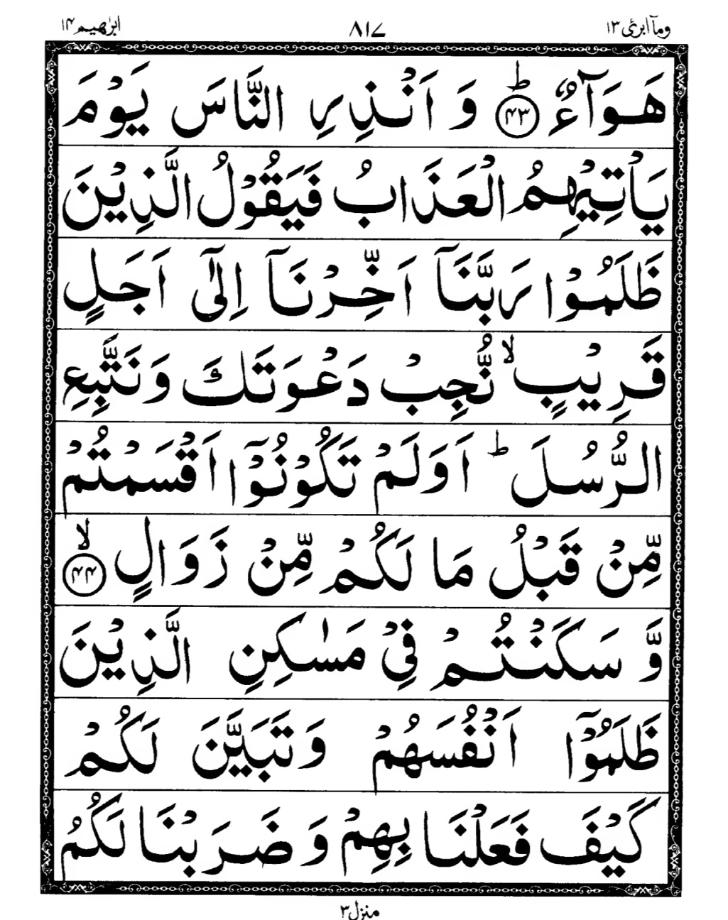 وماۤ ابرئ ۱۳ ۸۱۷ ابرٰهيم ۱۴
هَوَآءٌ ؕ﴿۴۳﴾ وَ اَنْذِرِ النَّاسَ يَوْمَ
يَاْتِيْهِمُ الْعَذَابُ فَيَقُوْلُ الَّذِيْنَ
ظَلَمُوْا رَبَّنَاۤ اَخِّرْنَاۤ اِلٰۤى اَجَلٍ
قَرِيْبٍ ۙ نُّجِبْ دَعْوَتَكَ وَ نَتَّبِعِ
الرُّسُلَ ؕ اَوَلَمْ تَكُوْنُوْۤا اَقْسَمْتُمْ
مِّنْ قَبْلُ مَا لَكُمْ مِّنْ زَوَالٍ ۙ﴿۴۴﴾
وَّ سَكَنْتُمْ فِيْ مَسٰكِنِ الَّذِيْنَ
ظَلَمُوْۤا اَنْفُسَهُمْ وَ تَبَيَّنَ لَكُمْ
كَيْفَ فَعَلْنَا بِهِمْ وَ ضَرَبْنَا لَكُمُ
منزل ۳